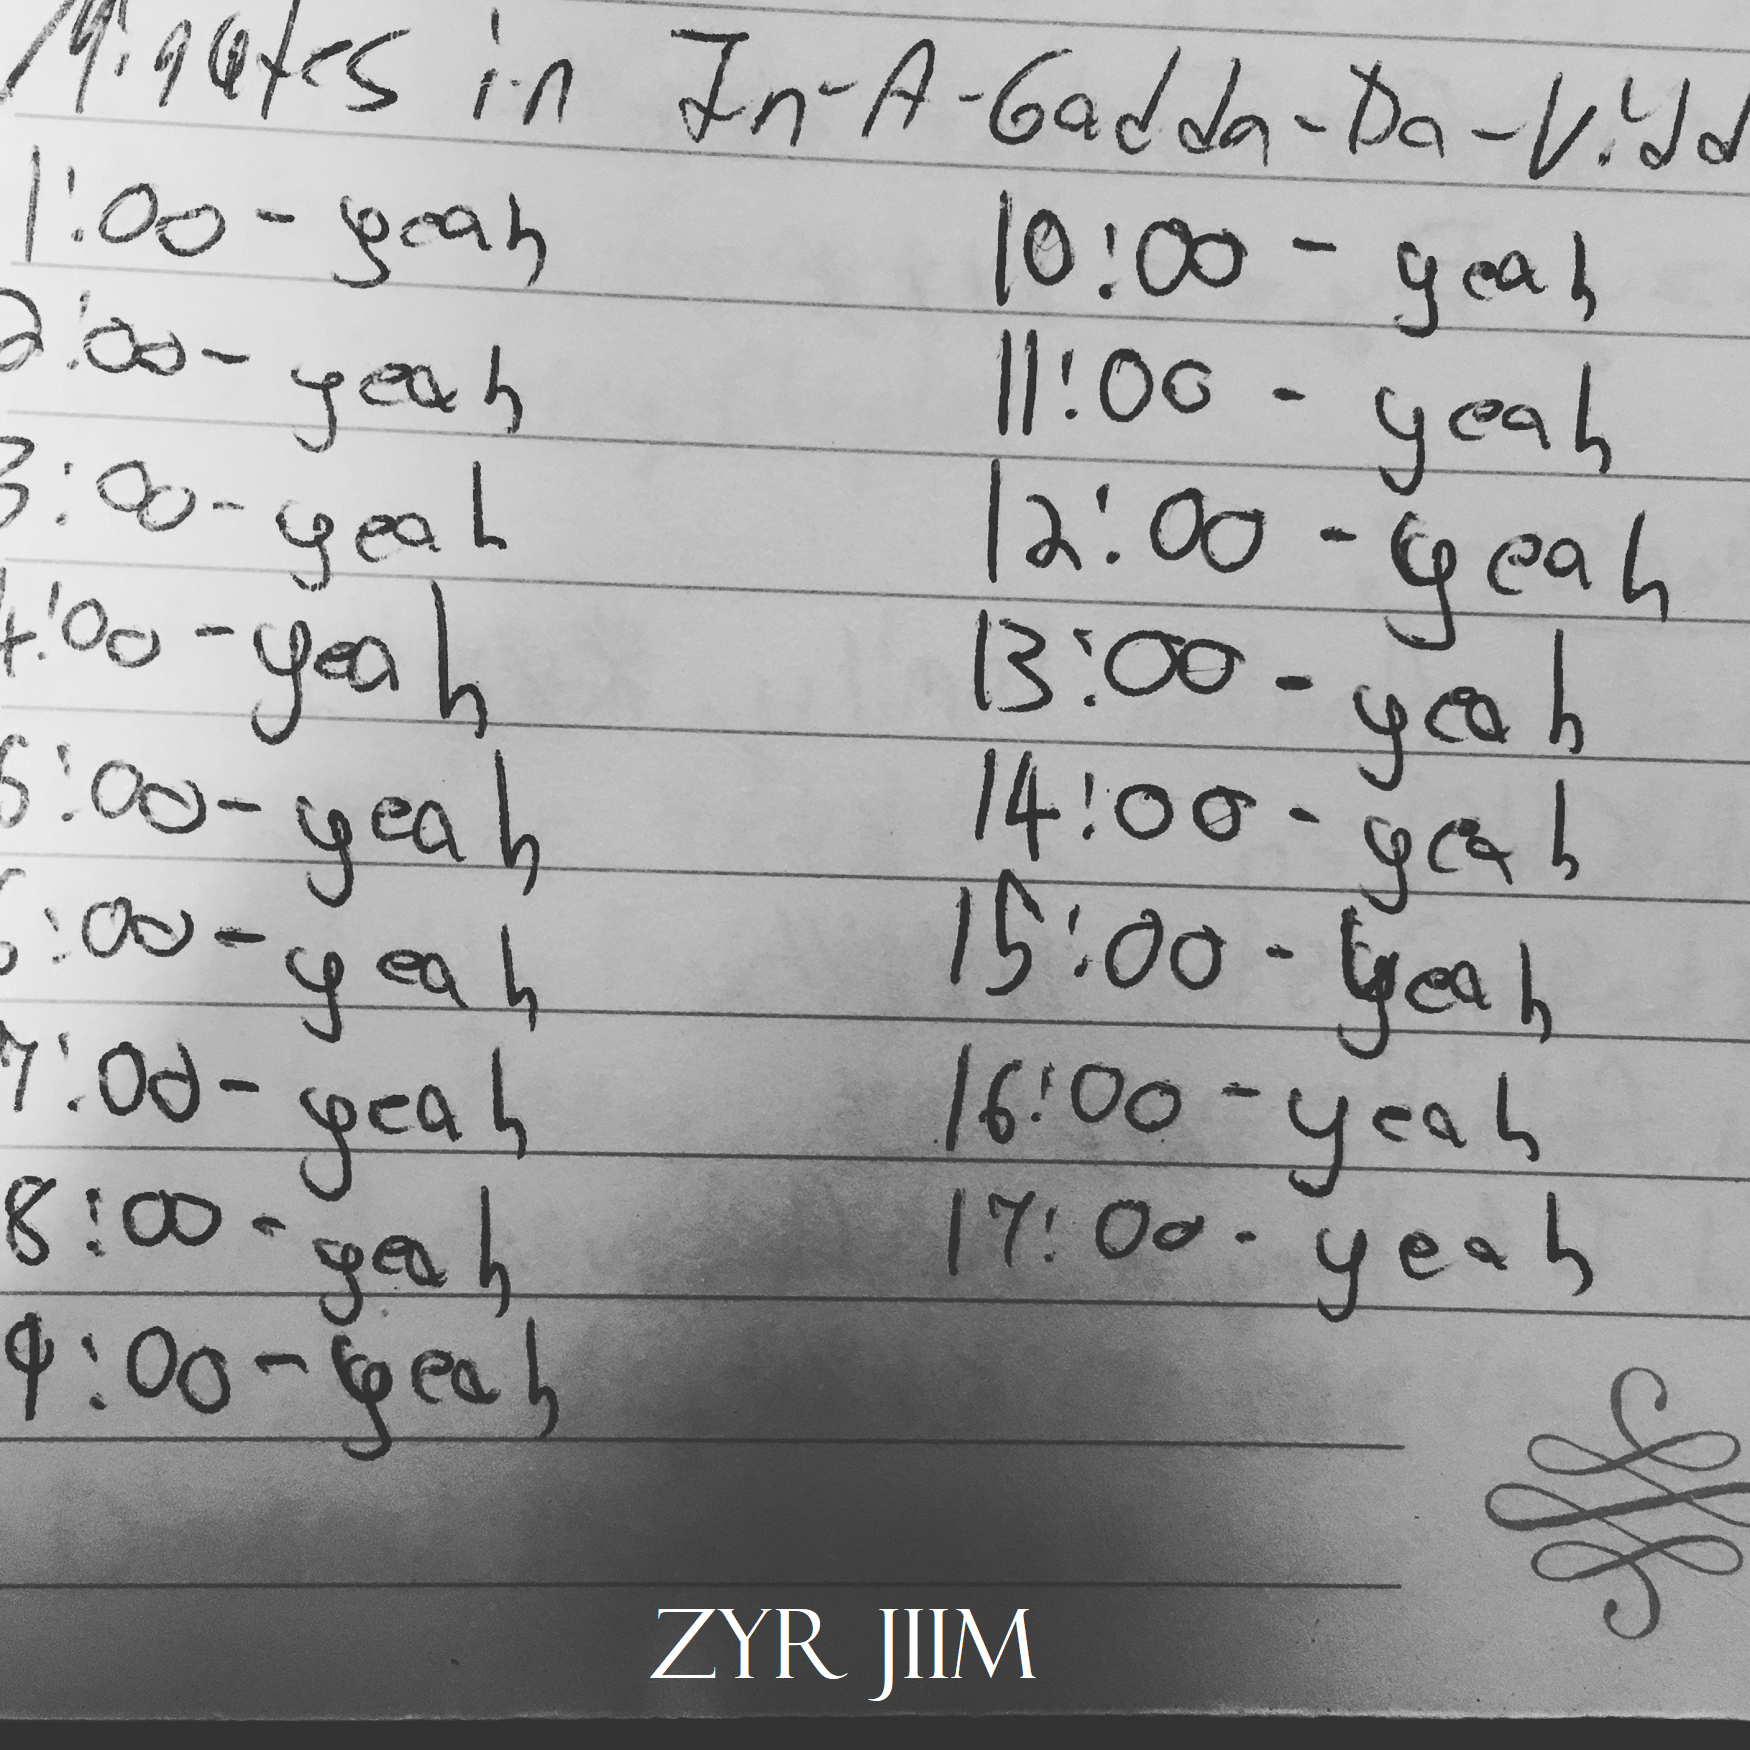 Minutes in In-A-Gadda-Da-Vidd
1:00 - yeah
2:00 - yeah
3:00 - yeah
4:00 - yeah
5:00 - yeah
6:00 - yeah
7:00 - yeah
8:00 - yeah
9:00 - yeah
10:00 - yeah
11:00 - yeah
12:00 - yeah
13:00 - yeah
14:00 - yeah
15:00 - yeah
16:00 - yeah
17:00 - yeah
ZYR JIIM